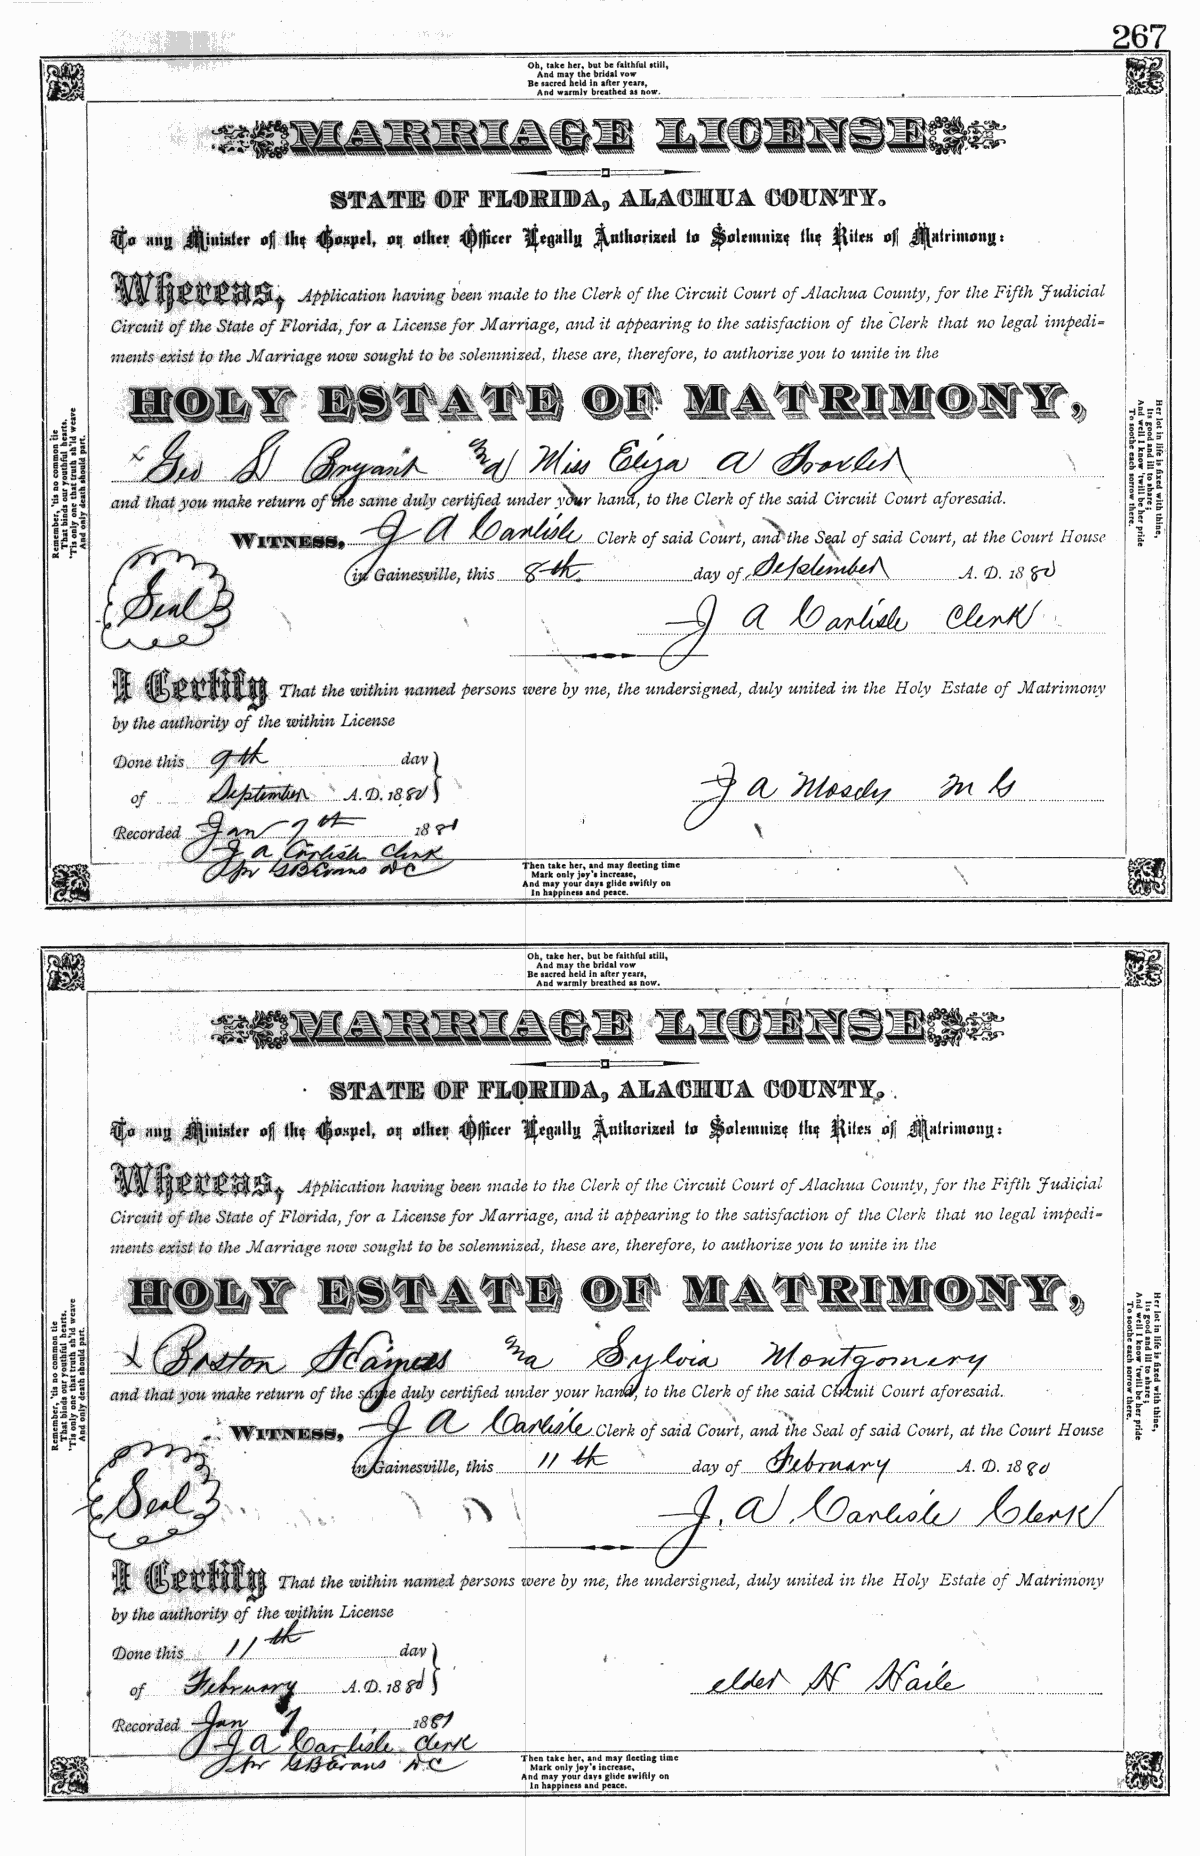 267
Oh, take her, but be faithful still,
And may the bridal vow
Be sacred held in after years,
And warmly breathed as now.
MARRIAGE LICENSE
STATE OF FLORIDA, ALACHUA COUNTY.
To any Minister of the Gospel, or other Officer Legally Authorized to Solemnize the Rites of Matrimony:
Whereas, Application having been made to the Clerk of the Circuit Court of Alachua County, for the Fifth Judicial
Circuit of the State of Florida, for a License for Marriage, and it appearing to the satisfaction of the Clerk that no legal impedi-
ments exist to the Marriage now sought to be solemnized, these are, therefore, to authorize you to unite in the
HOLY ESTATE OF MATRIMONY,
x Geo S Bryant and Miss Eliza A
and that you make return of the same duly certified under your hand, to the Clerk of the said Circuit Court aforesaid.
WITNESS, J A Carlisle Clerk of said Court, and the Seal of said Court, at the Court House
in Gainesville, this 8th day of September A. D. 1880
Seal
J A Carlisle Clerk
I Certify That the within named persons were by me, the undersigned, duly united in the Holy Estate of Matrimony
by the authority of the within License
Done this 9th day
of September A. D. 1880
J A Mosely M G
Recorded Jan 7th 1881
J A Carlisle Clerk
pr G B Evans D C
Then take her, and may fleeting time
Mark only joy's increase,
And may your days glide swiftly on
In happiness and peace.
Remember, 'tis no common tie
That binds our youthful hearts.
'Tis only one that truth sh'ld weave
And only death should part.
Her lot in life is fixed with thine,
Its good and ill to share;
And well I know 'twill be her pride
To soothe each sorrow there.
Oh, take her, but be faithful still,
And may the bridal vow
Be sacred held in after years,
And warmly breathed as now.
MARRIAGE LICENSE
STATE OF FLORIDA, ALACHUA COUNTY.
To any Minister of the Gospel, or other Officer Legally Authorized to Solemnize the Rites of Matrimony:
Whereas, Application having been made to the Clerk of the Circuit Court of Alachua County, for the Fifth Judicial
Circuit of the State of Florida, for a License for Marriage, and it appearing to the satisfaction of the Clerk that no legal impedi-
ments exist to the Marriage now sought to be solemnized, these are, therefore, to authorize you to unite in the
HOLY ESTATE OF MATRIMONY,
x Boston and Sylvia Montgomery
and that you make return of the same duly certified under your hand, to the Clerk of the said Circuit Court aforesaid.
WITNESS, J A Carlisle Clerk of said Court, and the Seal of said Court, at the Court House
in Gainesville, this 11th day of February A. D. 1880
Seal
J. A. Carlisle Clerk
I Certify That the within named persons were by me, the undersigned, duly united in the Holy Estate of Matrimony
by the authority of the within License
Done this 11th day
of February A. D. 1880
elder H Haile
Recorded Jan 7 1881
J A Carlisle Clerk
pr G B Evans D C
Then take her, and may fleeting time
Mark only joy's increase,
And may your days glide swiftly on
In happiness and peace.
Remember, 'tis no common tie
That binds our youthful hearts.
'Tis only one that truth sh'ld weave
And only death should part.
Her lot in life is fixed with thine,
Its good and ill to share;
And well I know 'twill be her pride
To soothe each sorrow there.